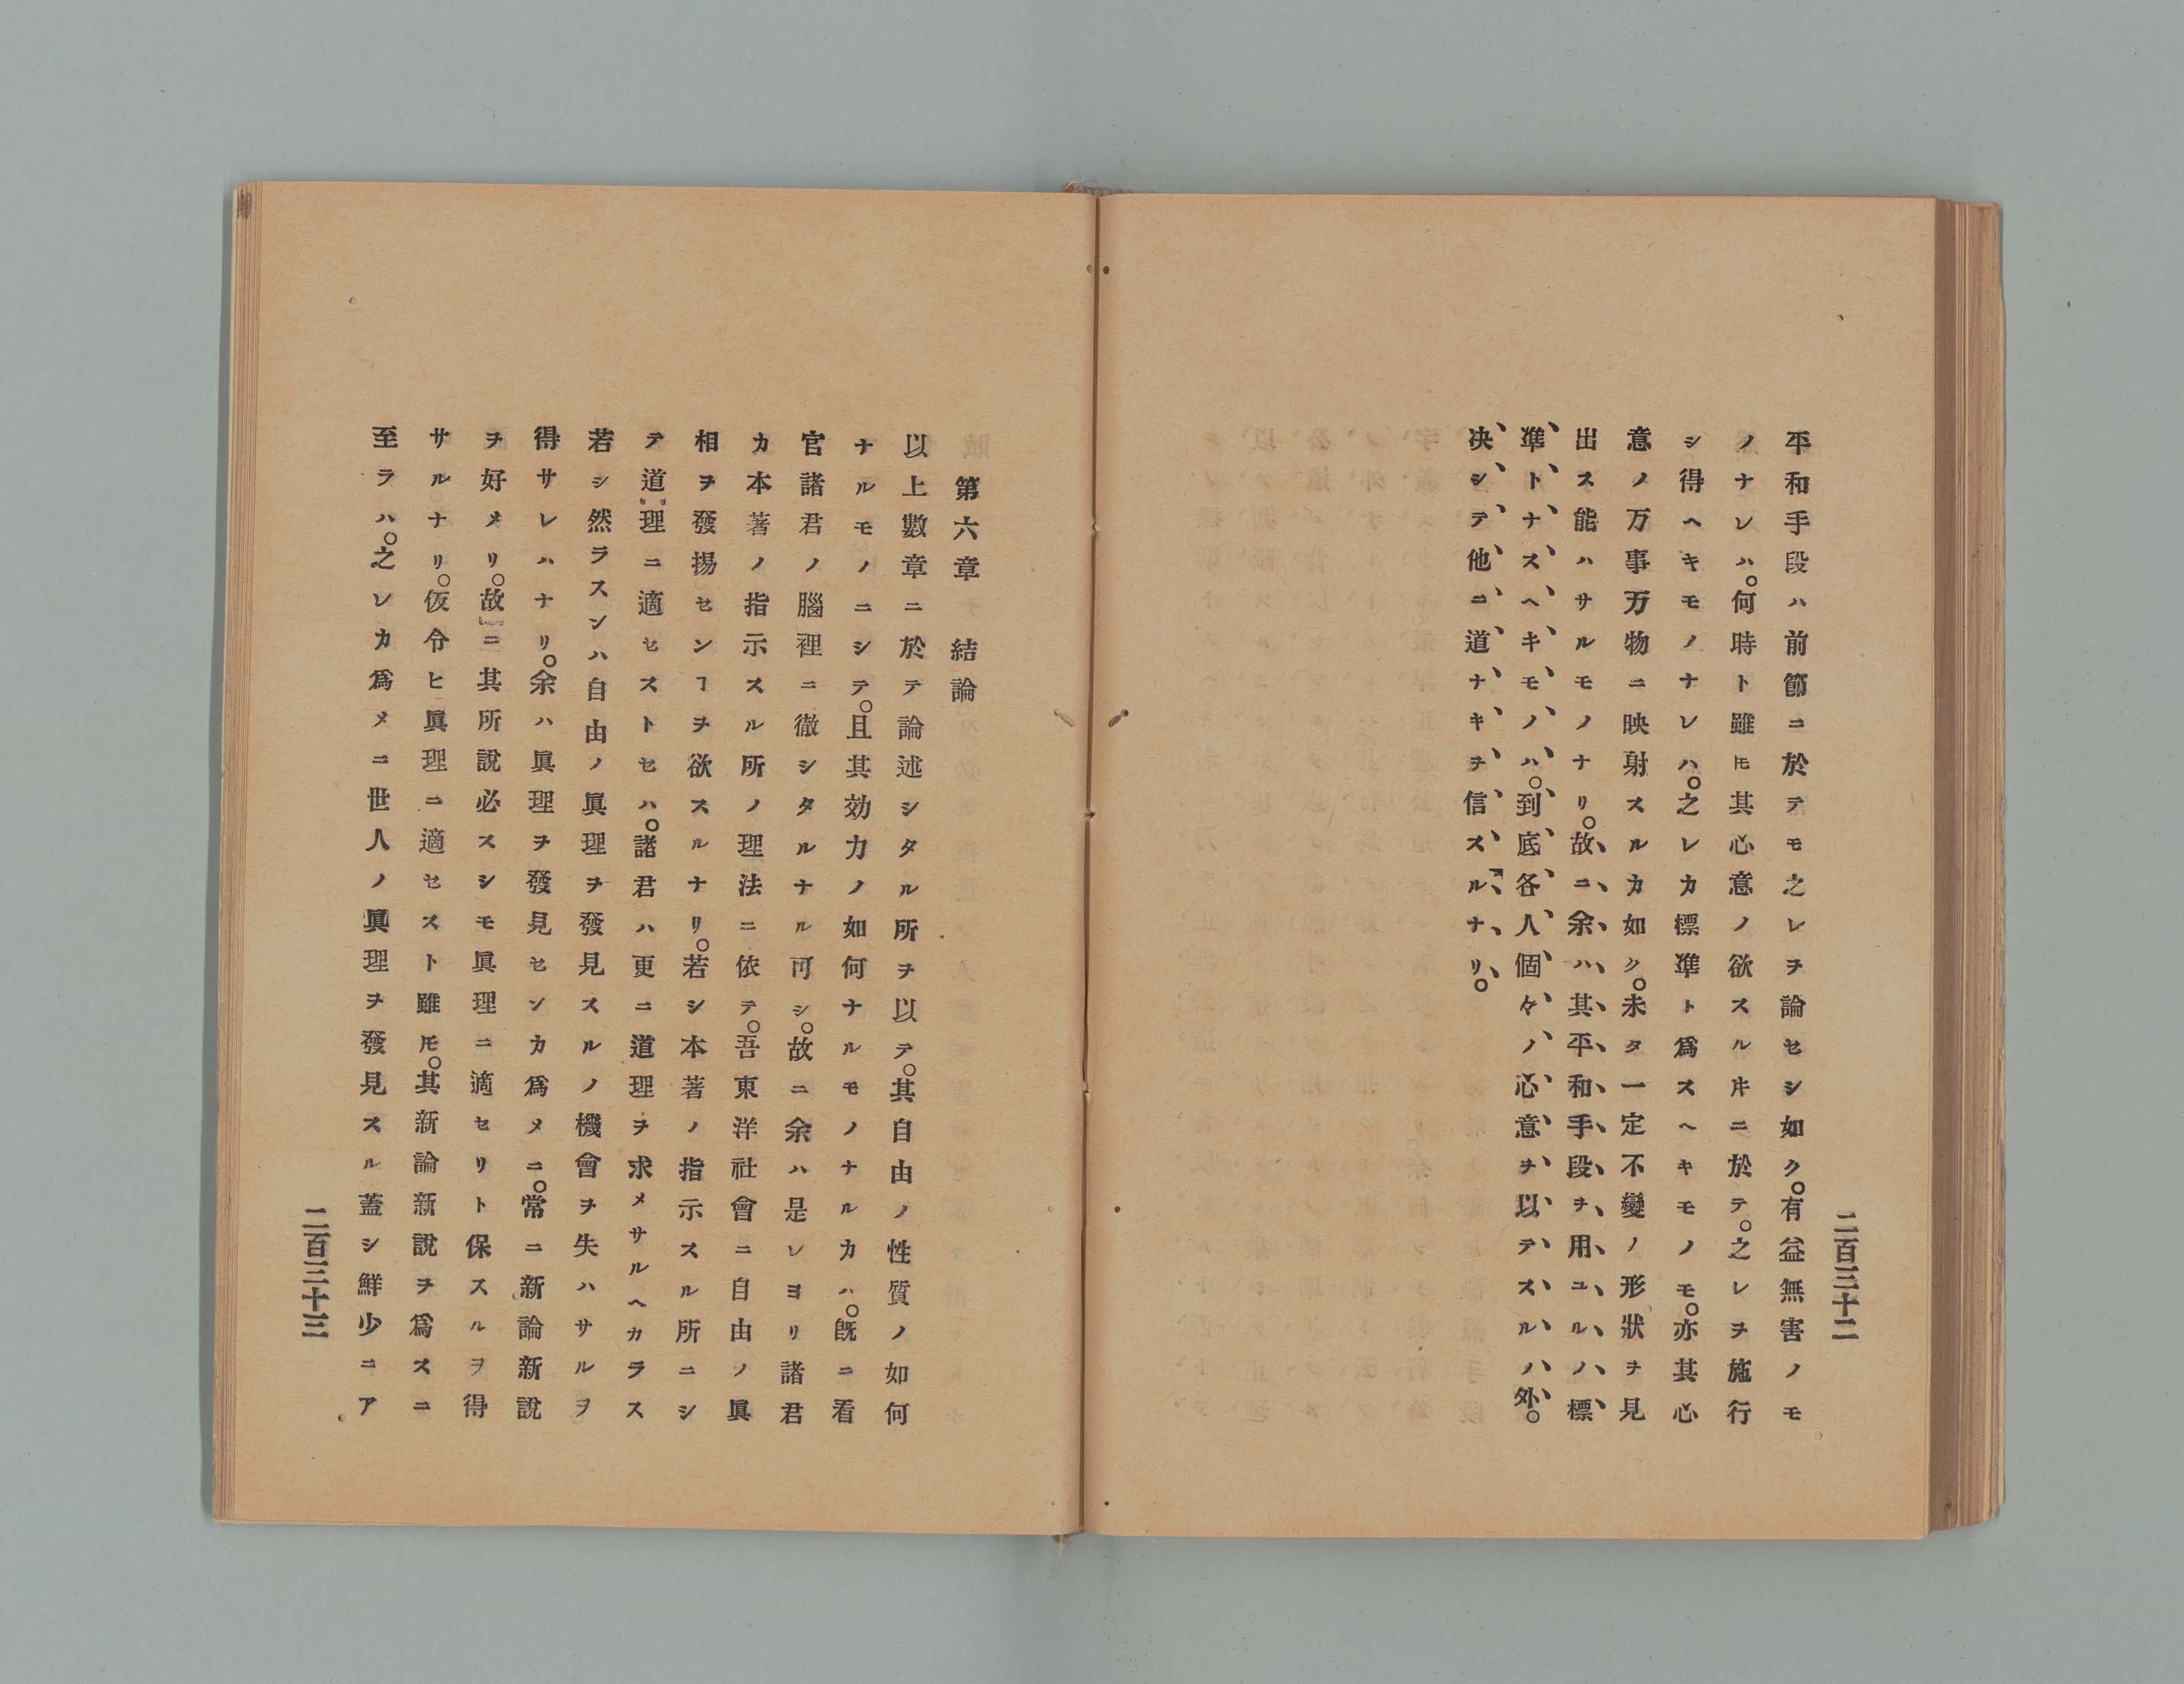 平和手段ハ前節ニ於テモ之レヲ論セシ如ク。有益無害ノモ
ノナレハ。何時ト雖𪜈其心意ノ欲スルㇹニ於テ。之レヲ施行
シ得ヘキモノナレハ。之レカ標凖ト爲スヘキモノモ。亦其心
意ノ万事万物ニ映射スルカ如ク。未タ一定不變ノ形狀ヲ見
出ス能ハサルモノナリ。故ニ余ハ其平和手段ヲ用ユルノ標
凖トナスヘキモノハ。到底各人個々ノ心意ヲ以テスルノ外。
决シテ他ニ道ナキヲ信スルナリ。
二百三十二
第六章 結論
以上數章ニ於テ論述シタル所ヲ以テ。其自由ノ性質ノ如何
ナルモノニシテ。且其効力ノ如何ナルモノナルカハ。旣ニ看
官諸君ノ腦裡ニ徹シタルナル可シ。故ニ余ハ是レヨリ諸君
カ本著ノ指示スル所ノ理法ニ依テ。吾東洋社會ニ自由ノ眞
相ヲ發揚センヿヲ欲スルナリ。若シ本著ノ指示スル所ニシ
テ道理ニ適セストセハ。諸君ハ更ニ道理ヲ求メサルヘカラス
若シ然ラスンハ自由ノ眞理ヲ發見スルノ機會ヲ失ハサルヲ
得サレハナリ。余ハ眞理ヲ發見センカ爲メニ。常ニ新論新說
ヲ好メリ。故ニ其所說必スシモ眞理ニ適セリト保スルヲ得
サルナリ。仮令ヒ眞理ニ適セスト雖𪜈。其新論新說ヲ爲スニ
至ラハ。之レカ爲メニ世人ノ眞理ヲ發見スル蓋シ鮮少ニア
二百三十三